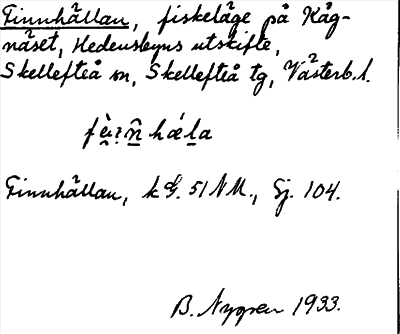 Finnhällan, fiskeläge på Kåg-
näset, Hedensbyns utskifte,
Skellefteå sn, Skellefteå tg, Västerb. l.
Finnhällan, k G. 51 NU., Sj. 104.
B. Nygren 1933.